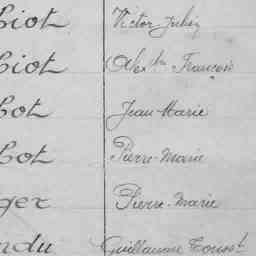 biot Victor Julien
biot Alex.dre François
bot Jean-Marie
bot Pierre-Marie
ger Pierre-Marie
ndu Guillaume Touss.t